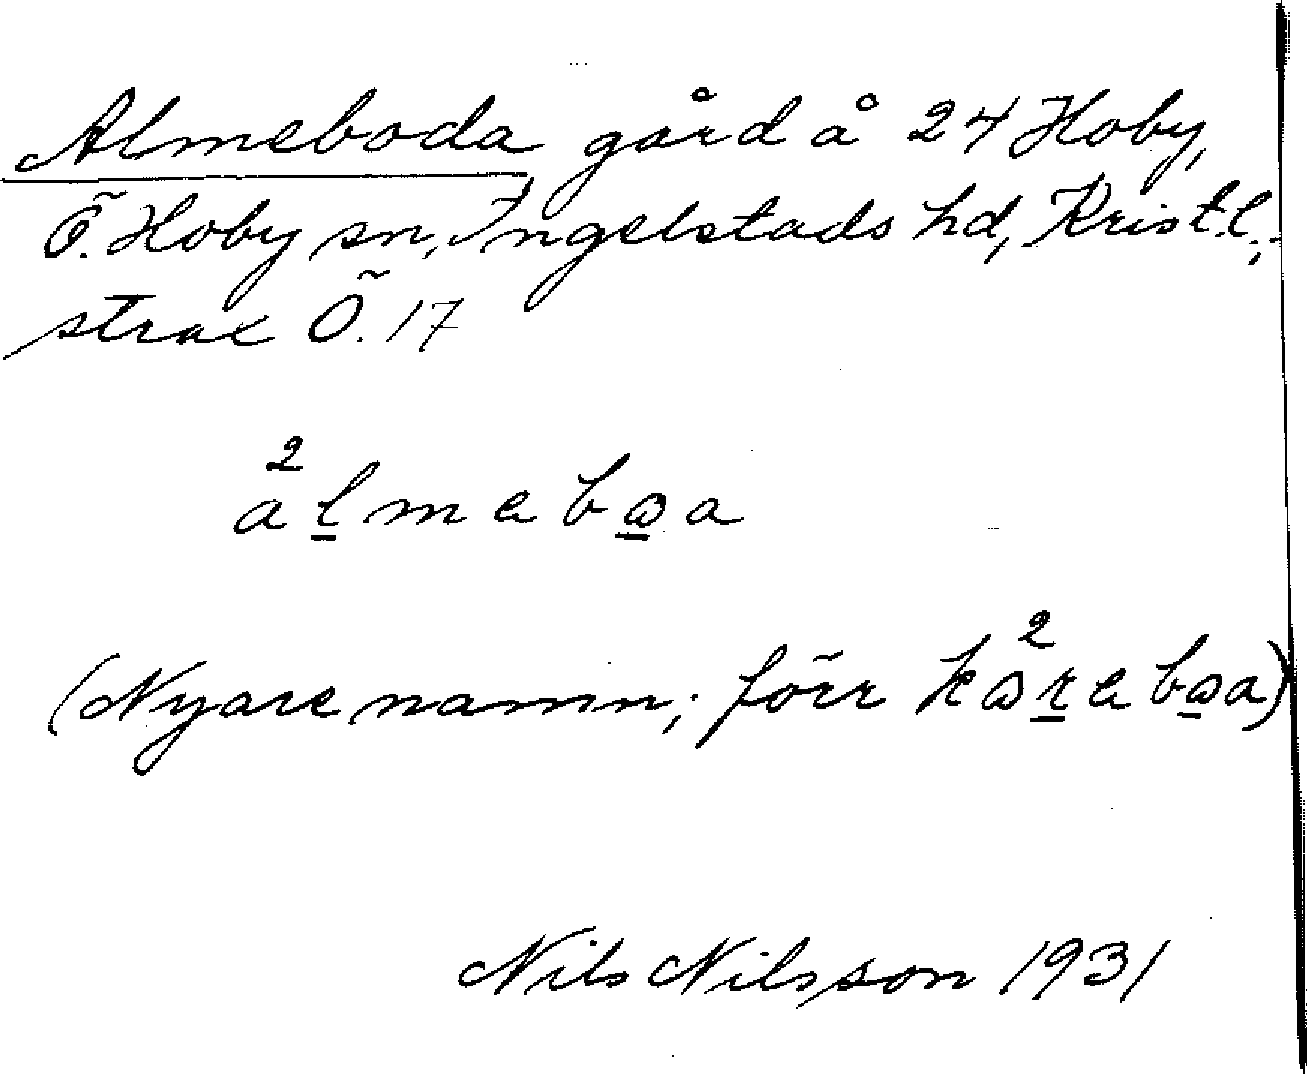 Almeboda gård å 24 Hoby,
Ö. Hoby sn, Ingelstads hd, Krist. l.;
strax Ö. 17
a²lmebωa
(Nyare namn; förr kω²rebωa)
Nils Nilsson 1931